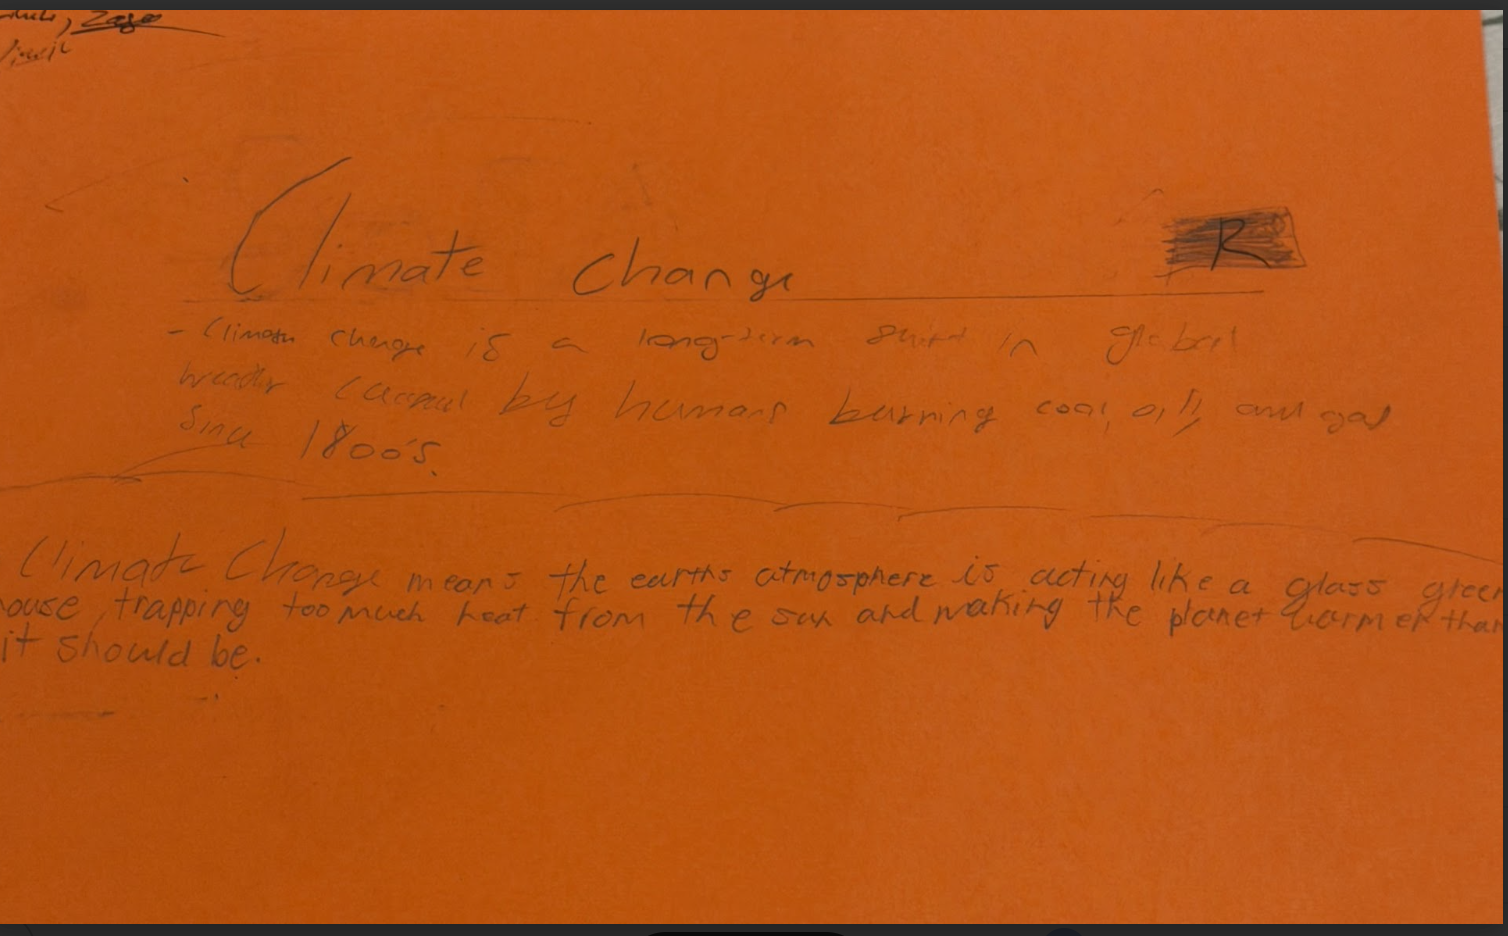 Climate change
R
- Climate change is a long-term shift in global
weather caused by humans burning coal, oil, and gas
Since 1800's.
Climate Change means the earths atmosphere is acting like a glass green
ouse, trapping too much heat from the sun and making the planet warmer than
it should be.